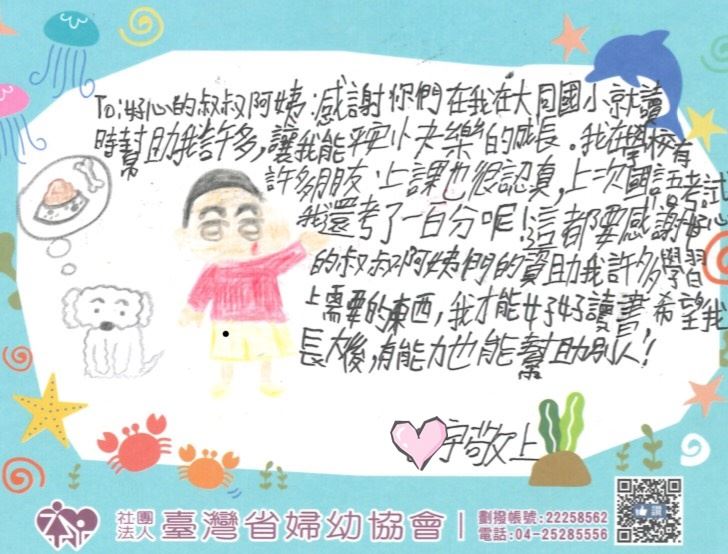 To:好心的叔叔阿姨:感謝你們在我在大同國小就讀
時幫助我許多,讓我能平安小快樂的成長。我在學校有
許多朋友、上課也很認真,上一次國語考試
我還考了一百分呢!這都要感謝好心
的叔叔阿姨們的資助我許多學習
上需要的東西,我才能好好讀書,希望我
長大後,有能力也能幫助別人!
宇敬上
社團法人 臺灣省婦幼協會
劃撥帳號:22258562
電話:04-25285556
讚